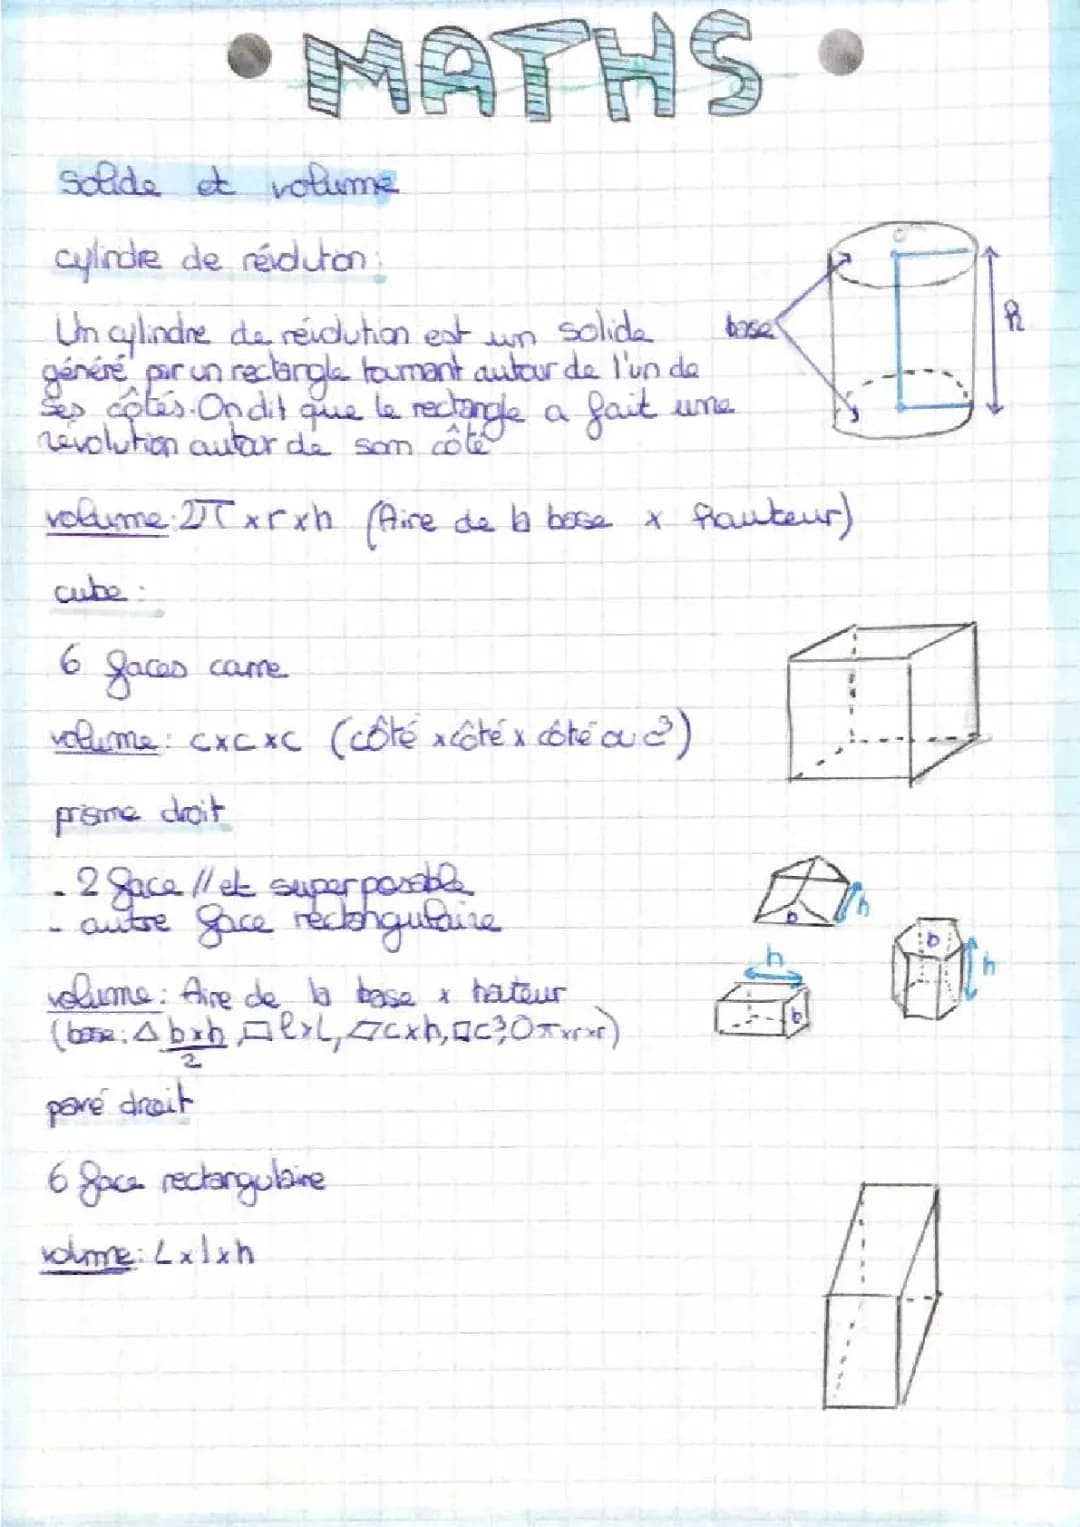 MATHS
solide et volume
cylindre de révolution :
Un cylindre de révolution est un solide
généré par un rectangle tournant autour de l'un de
ses côtés. On dit que le rectangle a fait une
révolution autour de son côté
base
h
volume: 2π x r x h (Aire de la base x hauteur)
cube :
6 faces carre
volume: c x c x c (côté x côté x côté ou c³)
prisme droit
- 2 face // et superposable
- autre face rectangulaire
b h
b h
h b
volume: Aire de la base x hateur
(base: △ b x h/2, ▭ l x L, ▱ c x h, □ c², O π x r x r)
pavé droit
6 face rectangulaire
volume: L x l x h